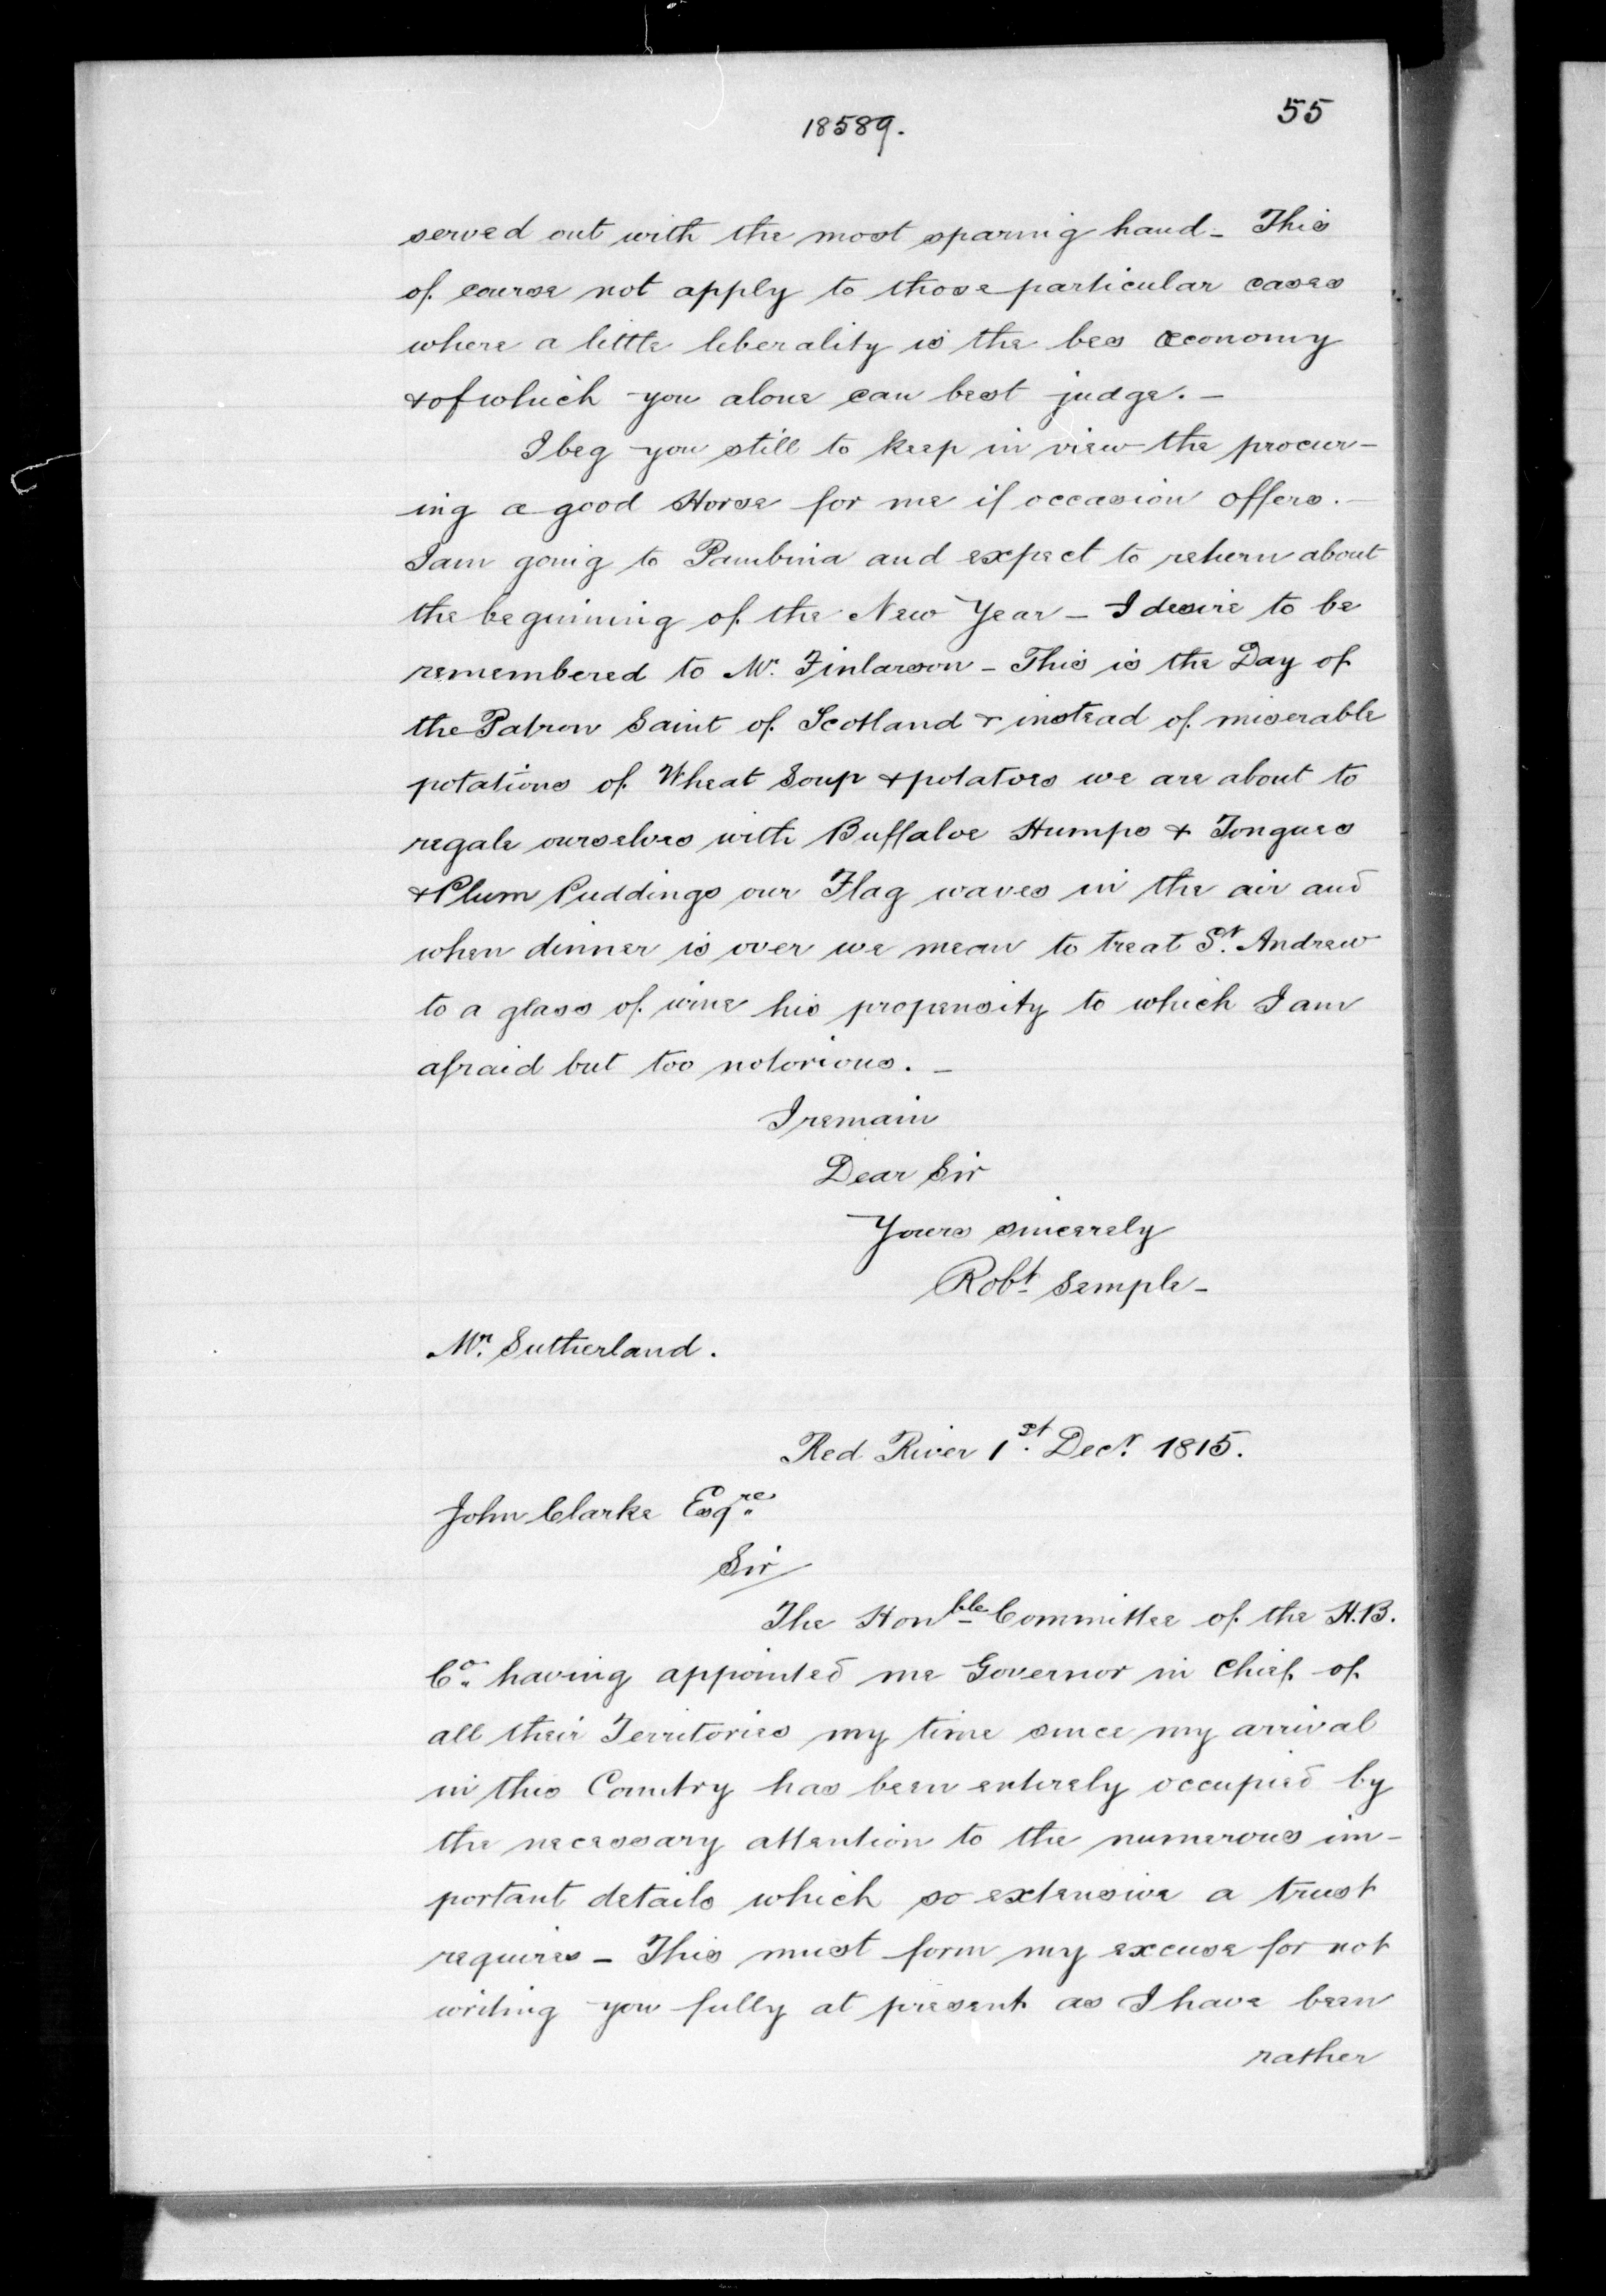 55
18589.
served out with the most sparing hand - This
of course not apply to those particular cases
where a little liberality is the bes œconomy
& of which you alone can best judge. -
I beg you still to keep in view the procur-
ing a good Horse for me if occasion offers. -
I am going to Pambina and expect to return about
the beginning of the New Year - I desire to be
remembered to Mr. Finlarson - This is the Day of
the Patron Saint of Scotland & instead of miserable
potations of Wheat Soup & potatoes we are about to
regale ourselves with Buffaloe Humps & Tongues
& Plum Puddings our Flag waves in the air and
when dinner is over we mean to treat St. Andrew
to a glass of wine his propensity to which I am
afraid but too notorious. -
I remain
Dear Sir
Yours sincerely
Robt. Semple -
Mr. Sutherland.
Red River 1st. Decr. 1815.
John Clarke Esqre.
Sir
The Honble Committee of the H.B.
Co. having appointed me Governor in Chief of
all their Territories my time since my arrival
in this Country has been entirely occupied by
the necessary attention to the numerous im-
portant details which so extensive a trust
requires - This must form my excuse for not
writing you fully at present as I have been
rather